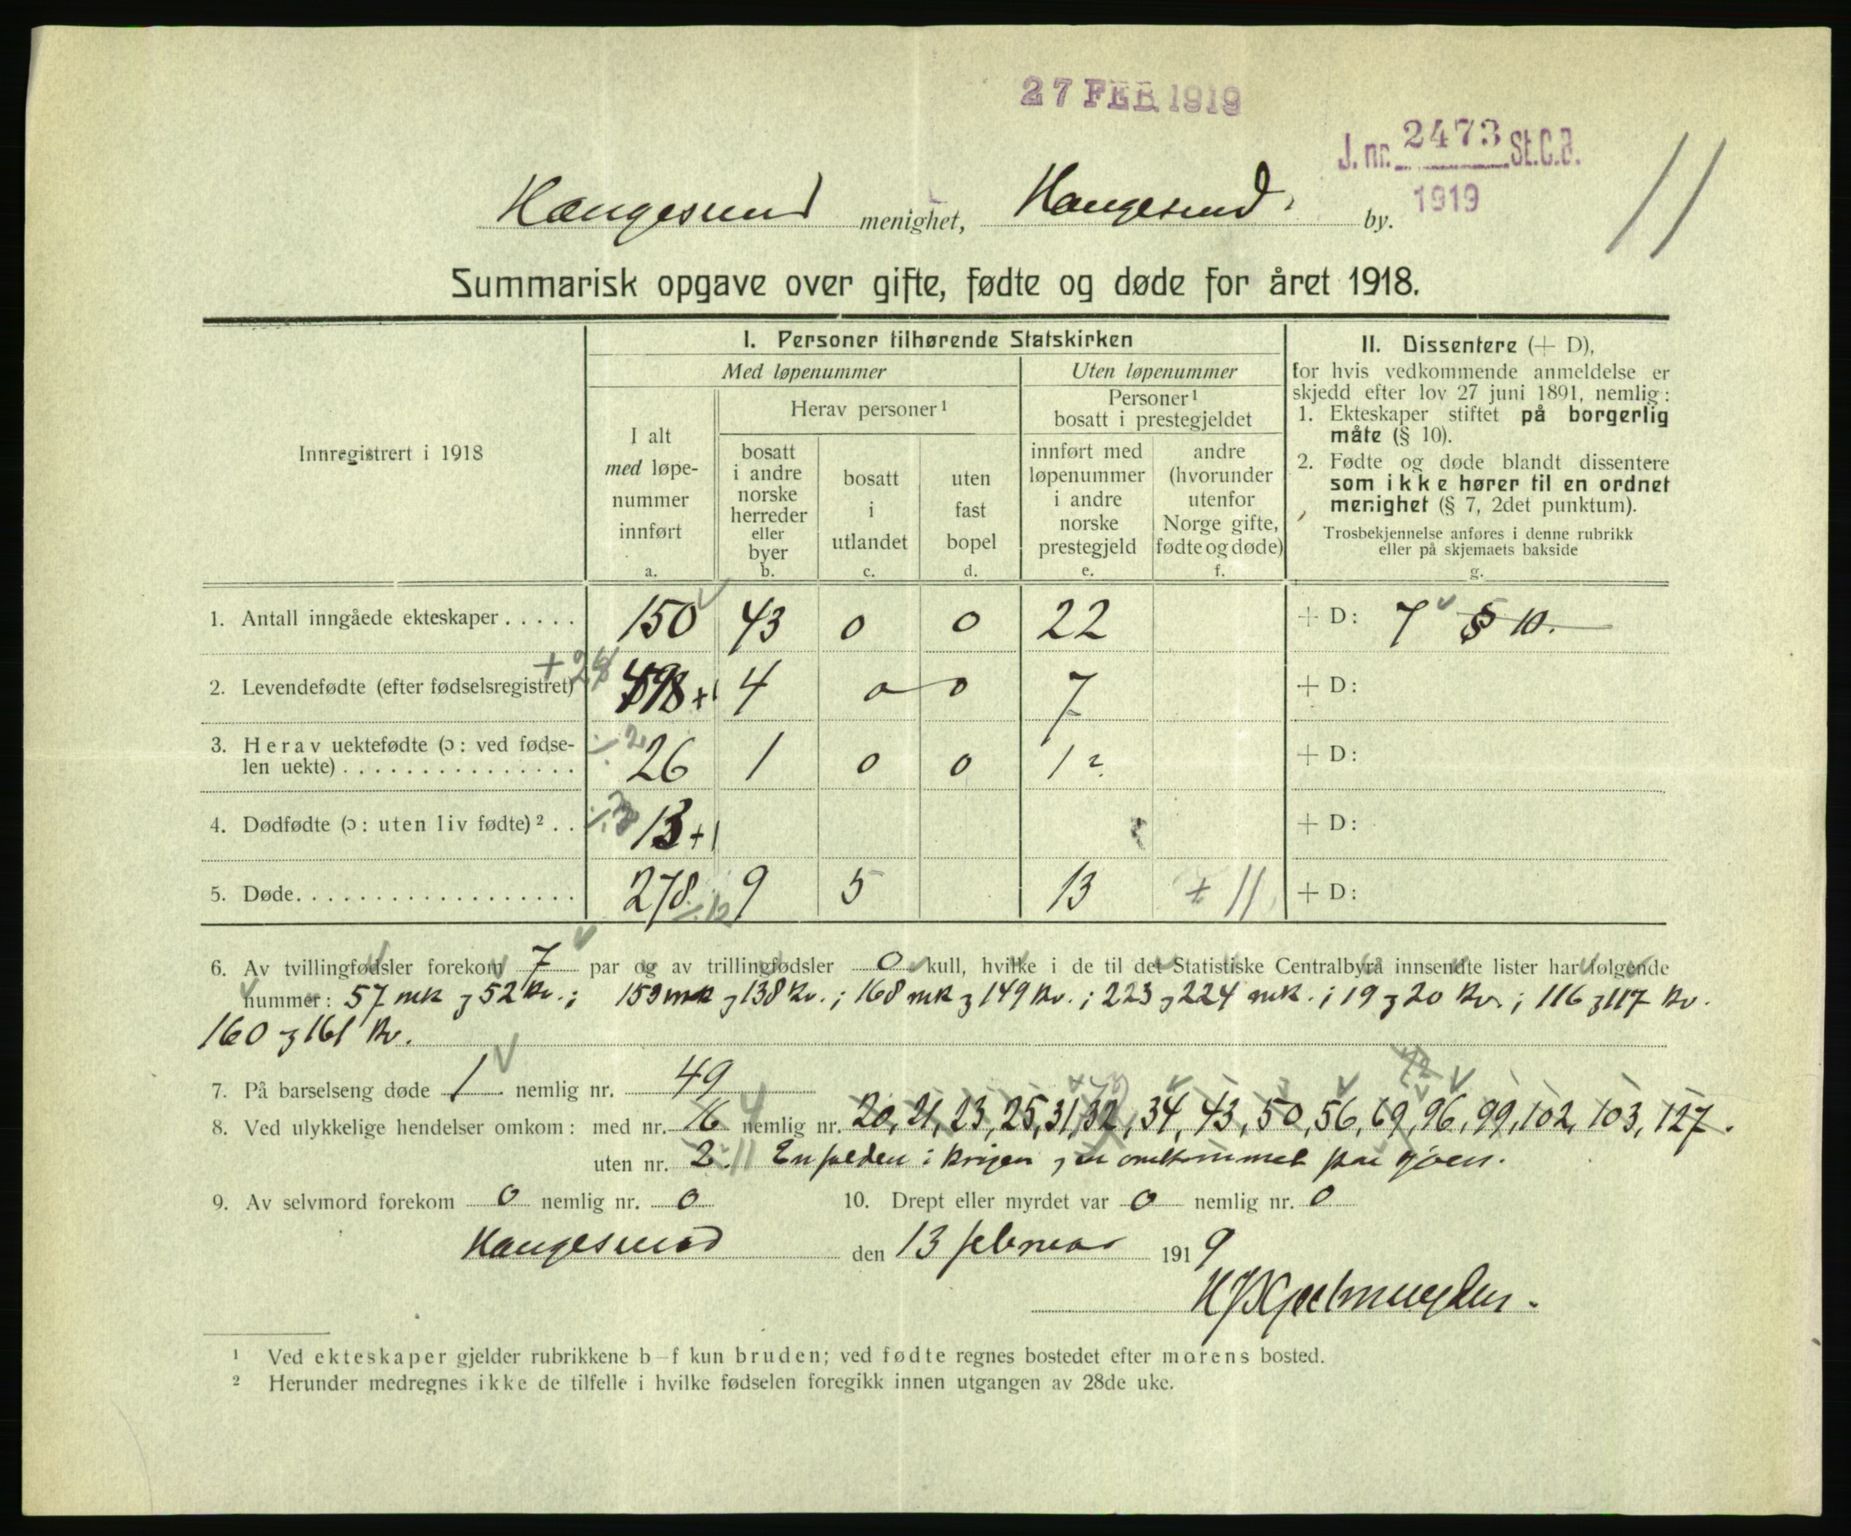 27 FEB 1919
J. nr. 2473 St.C.B.
1919
11
Haugesund menighet, Haugesund by.
Summarisk opgave over gifte, fødte og døde for året 1918.
Innregistrert i 1918
I. Personer tilhørende Statskirken
Med løpenummer
Uten løpenummer
I alt med løpenummer innført
a.
Herav personer¹
bosatt i andre norske herreder eller byer
b.
bosatt i utlandet
c.
uten fast bopel
d.
Personer¹ bosatt i prestegjeldet
innført med løpenummer i andre norske prestegjeld
e.
andre (hvorunder utenfor Norge gifte, fødte og døde)
f.
II. Dissentere (+ D),
for hvis vedkommende anmeldelse er
skjedd efter lov 27 juni 1891, nemlig:
1. Ekteskaper stiftet på borgerlig
måte (§ 10).
2. Fødte og døde blandt dissentere
som ikke hører til en ordnet
menighet (§ 7, 2det punktum).
Trosbekjennelse anføres i denne rubrikk
eller på skjemaets bakside
g.
1. Antall inngåede ekteskaper . . . . . 150 43 0 0 22 + D: 7 § 10.
2. Levendefødte (efter fødselsregistret) 498 +1 4 0 0 7 + D:
3. Herav uektefødte (ɔ: ved fødse-
len uekte) . . . . . . . . . . . . . . . ÷ 2 26 1 0 0 1 2. + D:
4. Dødfødte (ɔ: uten liv fødte)² . . 13 +1 + D:
5. Døde. . . . . . . . . . . . . . . . . . 278 9 5 13 + 11 + D:
6. Av tvillingfødsler forekom 7 par og av trillingfødsler 0 kull, hvilke i de til det Statistiske Centralbyrå innsendte lister har følgende
nummer: 57 mk og 52 kv.; 153 mk og 138 kv.; 168 mk og 149 kv.; 223 og 224 mk.; 19 og 20 kv.; 116 og 117 kv.
160 og 161 kv.
7. På barselseng døde 1 nemlig nr. 49
8. Ved ulykkelige hendelser omkom: med nr. 16 nemlig nr. 20, 21, 23, 25, 31, 32, 34, 43, 50, 56, 69, 96, 99, 102, 103, 127.
uten nr. 2. 11 En falden i krigen og en omkommet paa sjøen.
9. Av selvmord forekom 0 nemlig nr. 0 10. Drept eller myrdet var 0 nemlig nr. 0
Haugesund den 13 februar 1919
¹ Ved ekteskaper gjelder rubrikkene b–f kun bruden; ved fødte regnes bostedet efter morens bosted.
² Herunder medregnes ikke de tilfelle i hvilke fødselen foregikk innen utgangen av 28de uke.